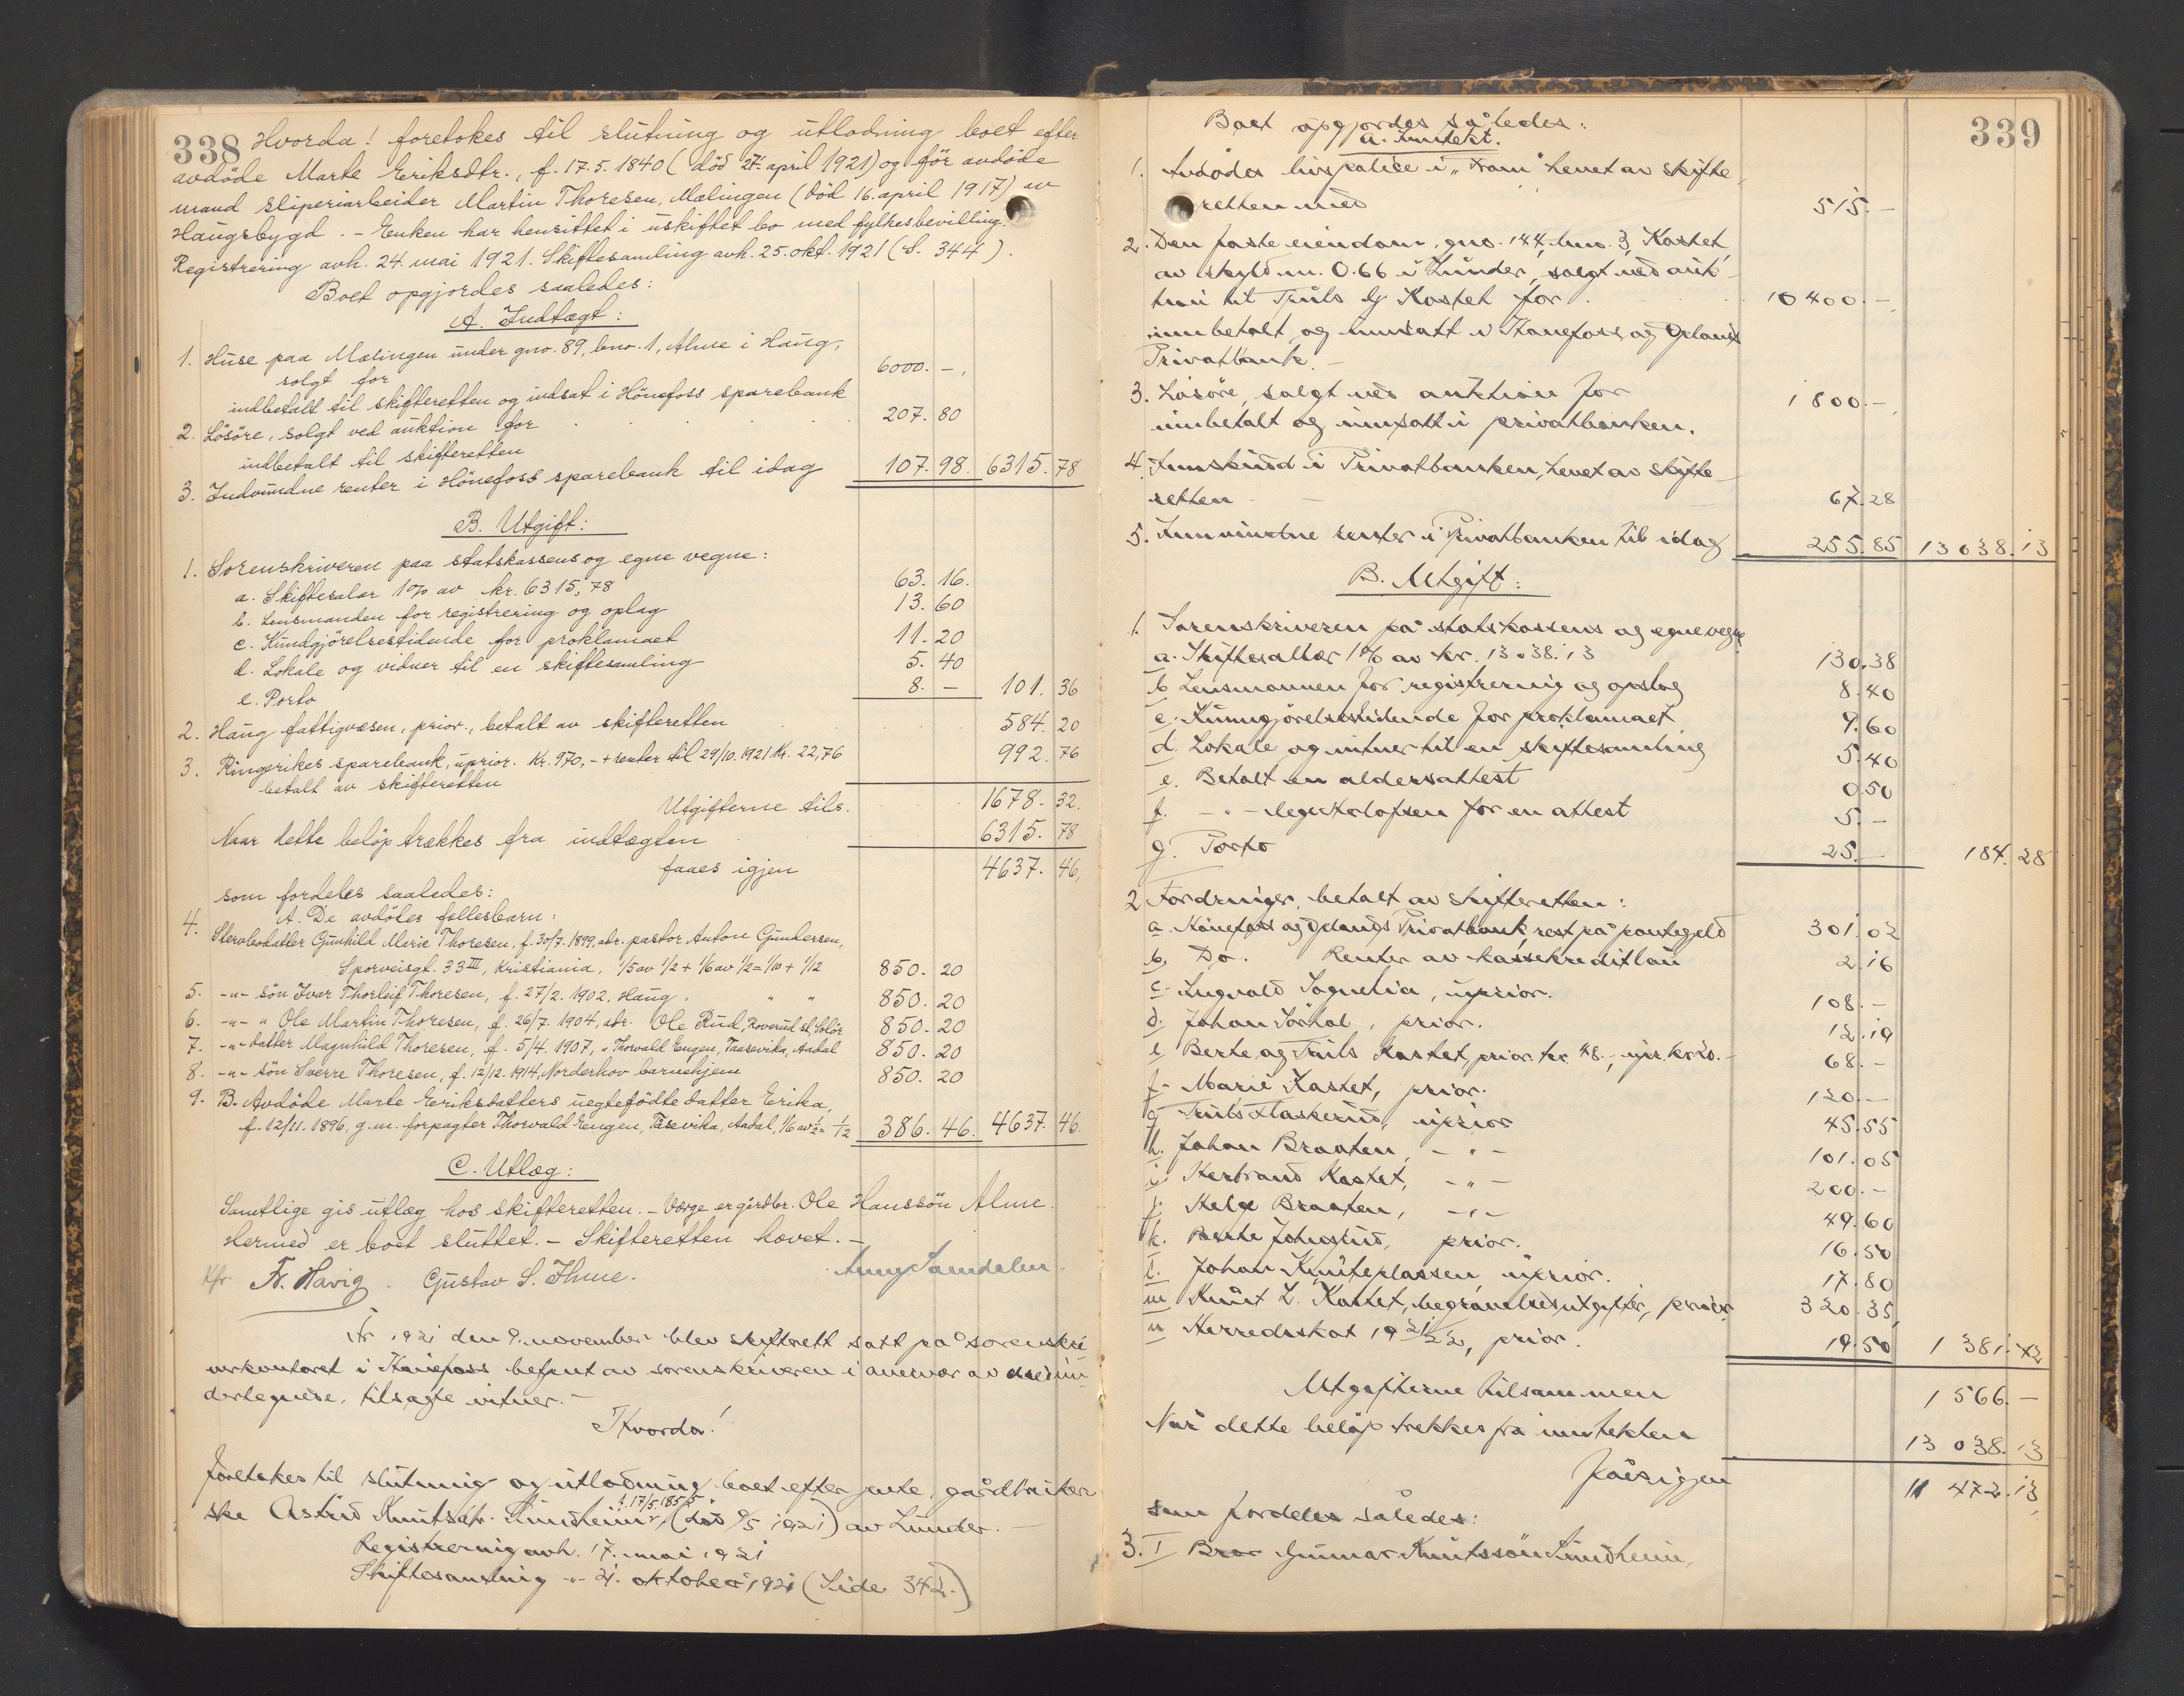 338
Hvorda! foretokes til slutning og utlodning boet efter
avdöde Marte Eriksdtr., f. 17.5.1840 (död 27. april 1921) og för avdöde
mand sliperiarbeider Martin Thoresen, Mælingen (död 16. april 1917) av
Haugsbygd. - Enken har hensittet i uskiftet bo med fylkesbevilling.
Registrering avh. 24. mai 1921. Skiftesamling avh. 25. okt. 1921 (S. 344).
Boet opgjordes saaledes:
A. Indtægt:
1. Huse paa Mælingen under gno. 89, bno. 1, Alme i Haug,
solgt for 6000. -,
indbetalt til skifteretten og indsat i Hönefoss sparebank
2. Lösöre, solgt ved auktion for 207. 80
indbetalt til skifteretten
3. Indvundne renter i Hönefoss sparebank til idag 107. 98. 6315. 78
B. Utgift:
1. Sorenskriveren paa statskassens og egne vegne:
a. Skiftesalær 1% av kr. 6315,78 63. 16.
b. Lensmanden for registrering og oplag 13. 60
c. Kundgjörelsestidende for proklamaet 11. 20
d. Lokale og vidner til en skiftesamling 5. 40
e. Porto 8. - 101. 36
2. Haug fattigvæsen, prior., betalt av skifteretten 584. 20
3. Ringerikes sparebank, uprior. Kr. 970,- + renter til 29/10.1921 Kr. 22,76 992. 76
betalt av skifteretten
Utgifterne tils. 1678. 32.
Naar dette belöp trækkes fra indtægten 6315. 78
faaes igjen 4637. 46,
som fordeles saaledes:
A. De avdödes fellesbarn:
4. Stervbodatter Gunhild Marie Thoresen, f. 30/7.1899, adr. pastor Anton Gundersen,
Sporveisgt. 33 III, Kristiania. 1/5 av 1/2 + 1/6 av 1/2 = 1/10 + 1/12 850. 20
5. -"- sön Ivar Thorleif Thoresen, f. 27/2.1902, Haug. " " 850. 20
6. -"- " Ole Martin Thoresen, f. 26/7.1904, adr. Ole Rud, Roverud st. Solör 850. 20
7. -"- datter Magnhild Thoresen, f. 5/4.1907, " Thorvald Engen, Taasevika, Aadal 850. 20
8. -"- sön Sverre Thoresen, f. 12/12.1914, Norderhov barnehjem 850. 20
9. B. Avdöde Marte Eriksdatters uegtefödte datter Erika,
f. 12/11.1896, g.m. forpagter Thorvald Engen, Tåsevika, Aadal, 1/6 av 1/2 = 1/12 386. 46. 4637. 46.
C. Utlæg:
Samtlige gis utlæg hos skifteretten. - Værge er gårdbr. Ole Hanssön Alme.
Hermed er boet sluttet. - Skifteretten hævet. -
Fr. Havig. Gustav S. Ihme.
År 1921 den 9. november blev skifterett satt på sorenskri-
verkontoret i Hönefoss betjent av sorenskriveren i ovenvær av med un-
dertegnede, tilsagte vitner. -
Hvorda!
foretokes til slutning og utlodning boet efter pente, gårdbruker-
ske Astrid Knutsdtr. Lindheim, f. 17/5.1855, (död 9/5 1921) av Lunder. -
Registrering avh. 17. mai 1921
Skiftesamling -"- 21. oktober 1921 (Side 342.)
339
Boet opgjordes således:
a. Inntekt.
1. Avdödes livspolise i "Fram" hevet av skifte-
retten med 515. -
2. Den faste eiendom, gno. 144, bno. 3, Kastet,
av skyld m. 0.66 i Lunder, solgt ved auk-
sjon til Truls G. Kastet for 10400. -
innbetalt og innsatt i Hönefoss og Oplands
Privatbank. -
3. Lösöre, solgt ved auktion for 1800. -
innbetalt og innsatt i privatbanken.
4. Innskudd i Privatbanken, hevet av skifte-
retten 67. 28
5. Innvundne renter i Privatbanken til idag 255. 85 13038. 13
B. Utgift:
1. Sorenskriveren på statskassens og egne vegne
a. Skiftesallær 1% av kr. 13038.13 130. 38
b. Lensmannen for registrering og opslag 8. 40
c. Kunngjörelsestidende for proklamaet 9. 60
d. Lokale og vitner til en skiftesamling 5. 40
e. Betalt en aldersattest 0. 50
f. -"- for en attest 5. -
g. Porto 25. - 184. 28
2. Fordringer, betalt av skifteretten:
a. Hönefoss og Oplands Privatbank, rest på pantegeld 301. 02
b. Do. Renter av kassekreditlån 2. 16
c. Ingvald Sognelia, uprior. 108. -
d. Johan Sörhol, prior. 12. 19
e. Berte og Truls Kastet, prior. kr. 48.-, upr. kr. 20.- 68. -
f. Marie Kastet, prior. 120. -
g. Truls Flaskerud, uprior 45. 55
h. Johan Braaten, -"- 101. 05
i. Herbrand Kastet, -"- 200. -
j. Helge Braaten, -"- 49. 60
k. Berte Johnsrud, prior. 16. 50
l. Johan Knuteplassen uprior. 17. 80
m. Knut L. Kastet, begravelsesutgifter, prior 320. 35,
n. Herredsskat 1921/22, prior. 19. 50 1381. 72
Utgifterne tilsammen 1566. -
Når dette belöp trekkes fra inntekten 13038. 13
fåes igjen 11472. 13
som fordeles således:
3. I Bror Gunnar Knutssön Lindheim,